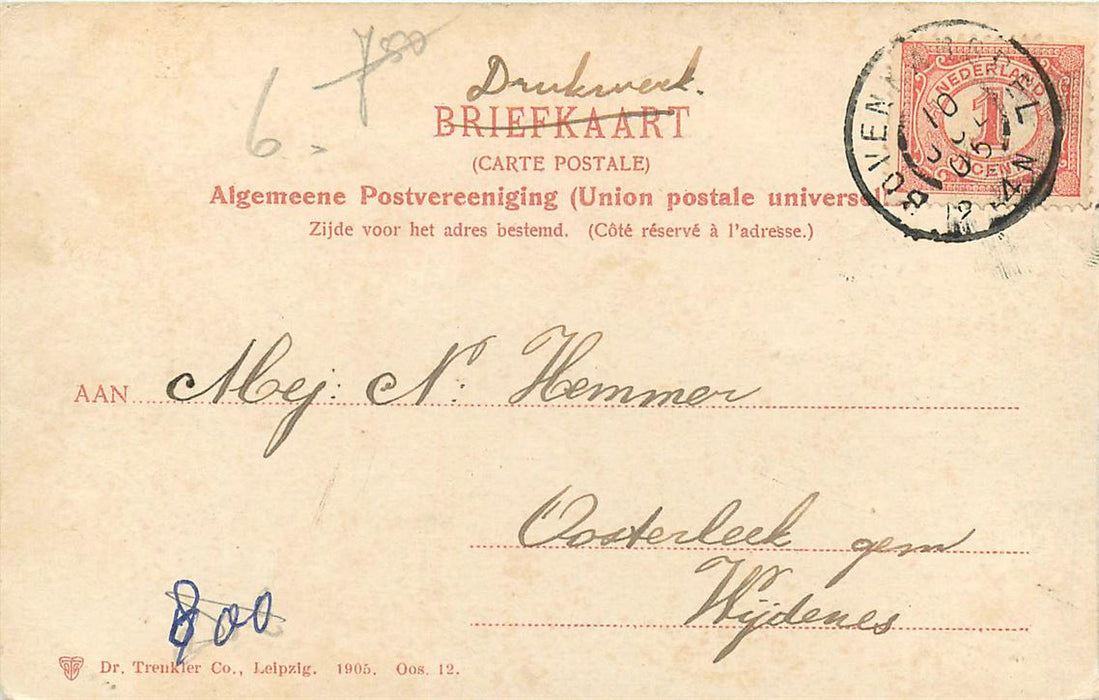 7 50
6 -
Drukwerk.
BRIEFKAART
(CARTE POSTALE)
Algemeene Postvereeniging (Union postale universel
Zijde voor het adres bestemd. (Côté réservé à l'adresse.)
NEDERLAND
1
CENT
BOVENKARSPEL
10
05
AAN Mej. N. Hemmer
Oosterleek gem
Wijdenes
800
Dr. Trenkler Co., Leipzig. 1905. Oos. 12.